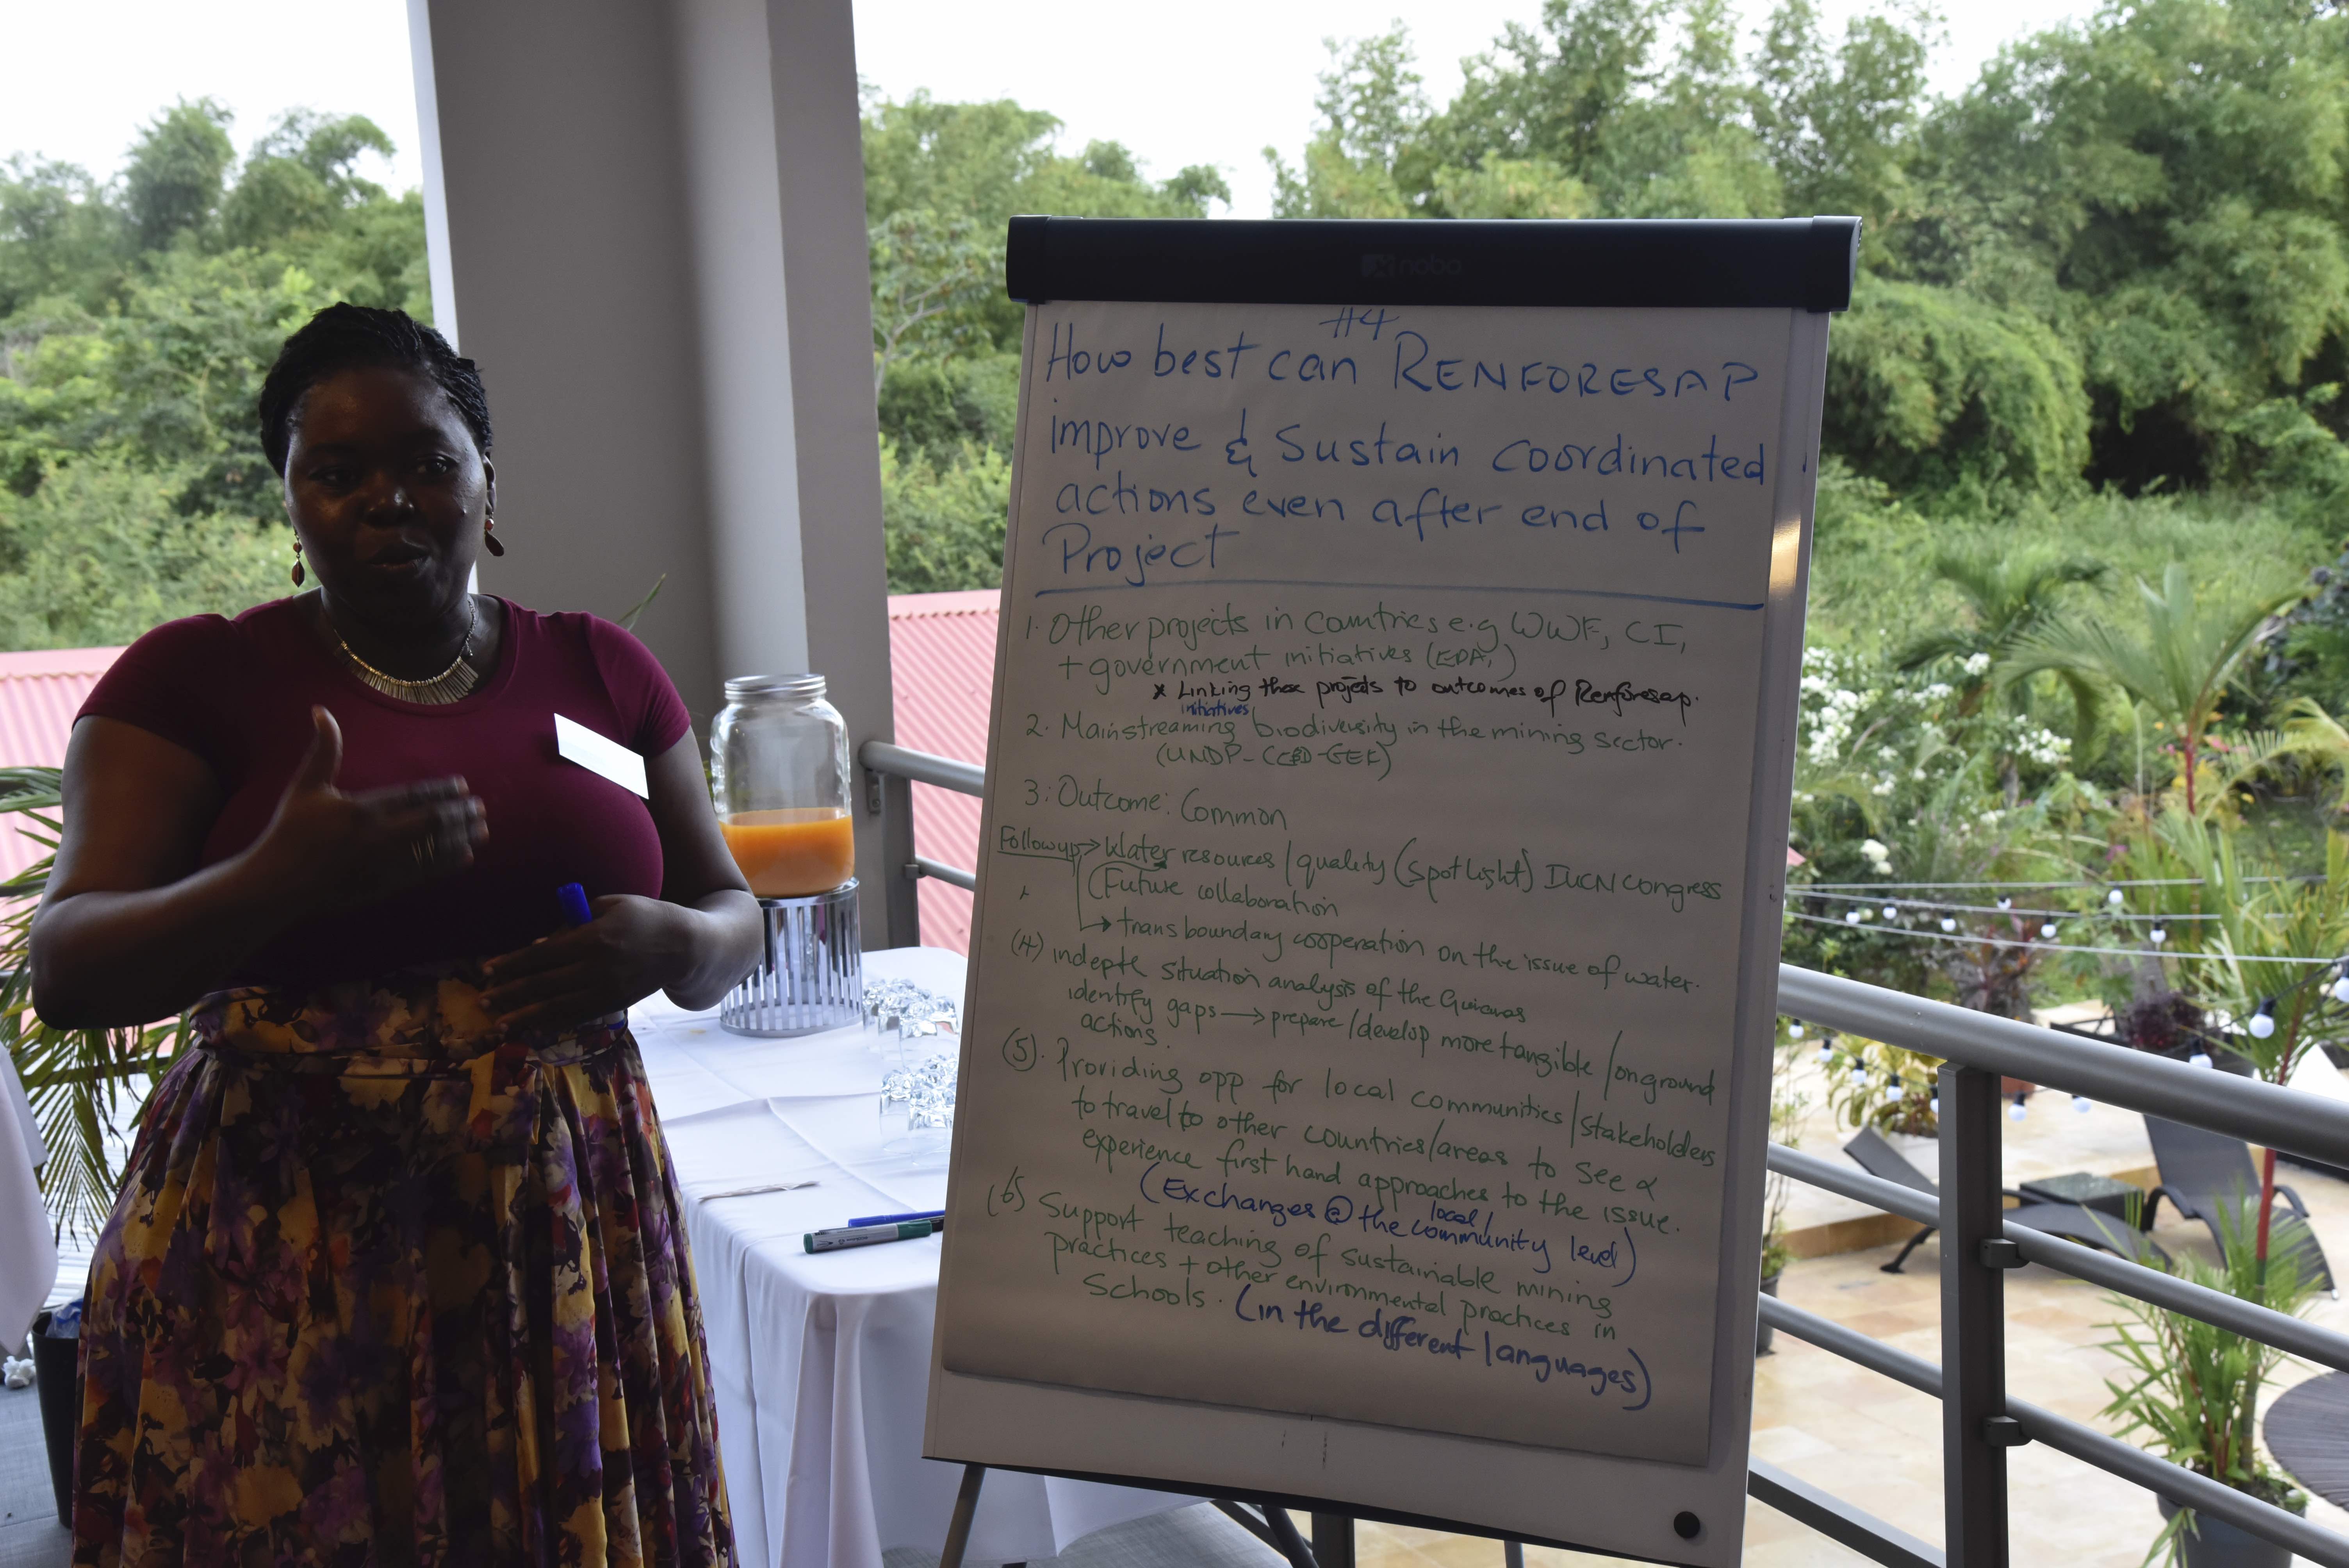 nobo
#4
How best can RENFORESAP
improve & Sustain coordinated
actions even after end of
Project
1. Other projects in countries e.g WWF, CI,
+ government initiatives (EPA,)
x Linking these projects to outcomes of Renforesap.
initiatives
2. Mainstreaming biodiversity in the mining sector.
(UNDP-CCBD-GEF)
3. Outcome: Common
Followup → Water resources / quality (spotlight) IUCN congress
(Future collaboration
→ transboundary cooperation on the issue of water.
(4) indepth situation analysis of the Guianas
identify gaps → prepare/develop more tangible/onground
actions.
(5). Providing opp for local communities/stakeholders
to travel to other countries/areas to see &
experience first hand approaches to the issue.
(Exchanges @ the local/community level)
(6) Support teaching of sustainable mining
practices + other environmental practices in
Schools. (in the different languages)